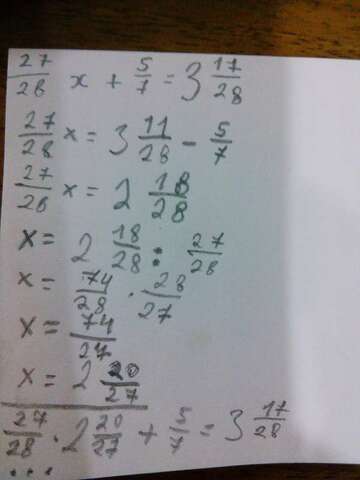 27/28 x + 5/7 = 3 17/28
27/28 x = 3 11/28 - 5/7
27/28 x = 2 18/28
x = 2 18/28 : 27/28
x = 74/28 · 28/27
x = 74/27
x = 2 20/27
27/28 · 2 20/27 + 5/7 = 3 17/28
...